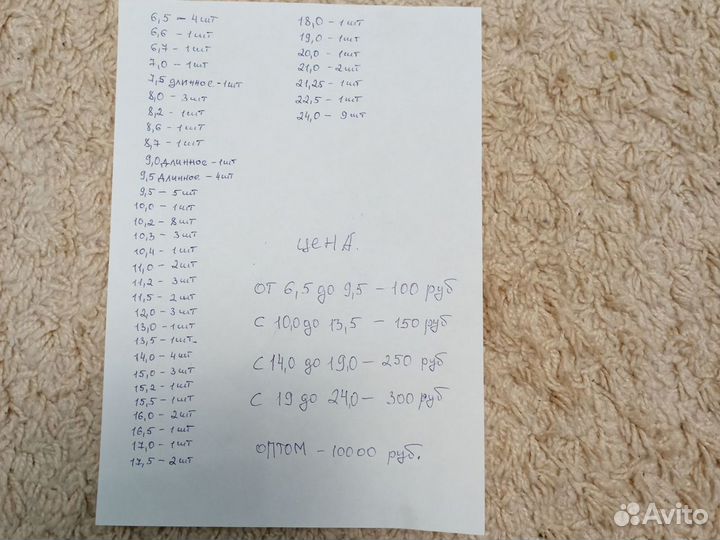 6,5 - 4 шт
6,6 - 1 шт
6,7 - 1 шт
7,0 - 1 шт
7,5 длинное - 1 шт
8,0 - 3 шт
8,2 - 1 шт
8,6 - 1 шт
8,7 - 1 шт
9,0 длинное - 1 шт
9,5 длинное - 4 шт
9,5 - 5 шт
10,0 - 1 шт
10,2 - 8 шт
10,3 - 3 шт
10,4 - 1 шт
11,0 - 2 шт
11,2 - 3 шт
11,5 - 2 шт
12,0 - 3 шт
13,0 - 1 шт
13,5 - 1 шт.
14,0 - 4 шт
15,0 - 3 шт
15,2 - 1 шт
15,5 - 1 шт
16,0 - 2 шт
16,5 - 1 шт
17,0 - 1 шт
17,5 - 2 шт
18,0 - 1 шт
19,0 - 1 шт
20,0 - 1 шт
21,0 - 2 шт
21,25 - 1 шт
22,5 - 1 шт
24,0 - 9 шт
ЦЕНА.
от 6,5 до 9,5 - 100 руб
с 10,0 до 13,5 - 150 руб
с 14,0 до 19,0 - 250 руб
с 19 до 24,0 - 300 руб
оптом - 10000 руб.
Avito